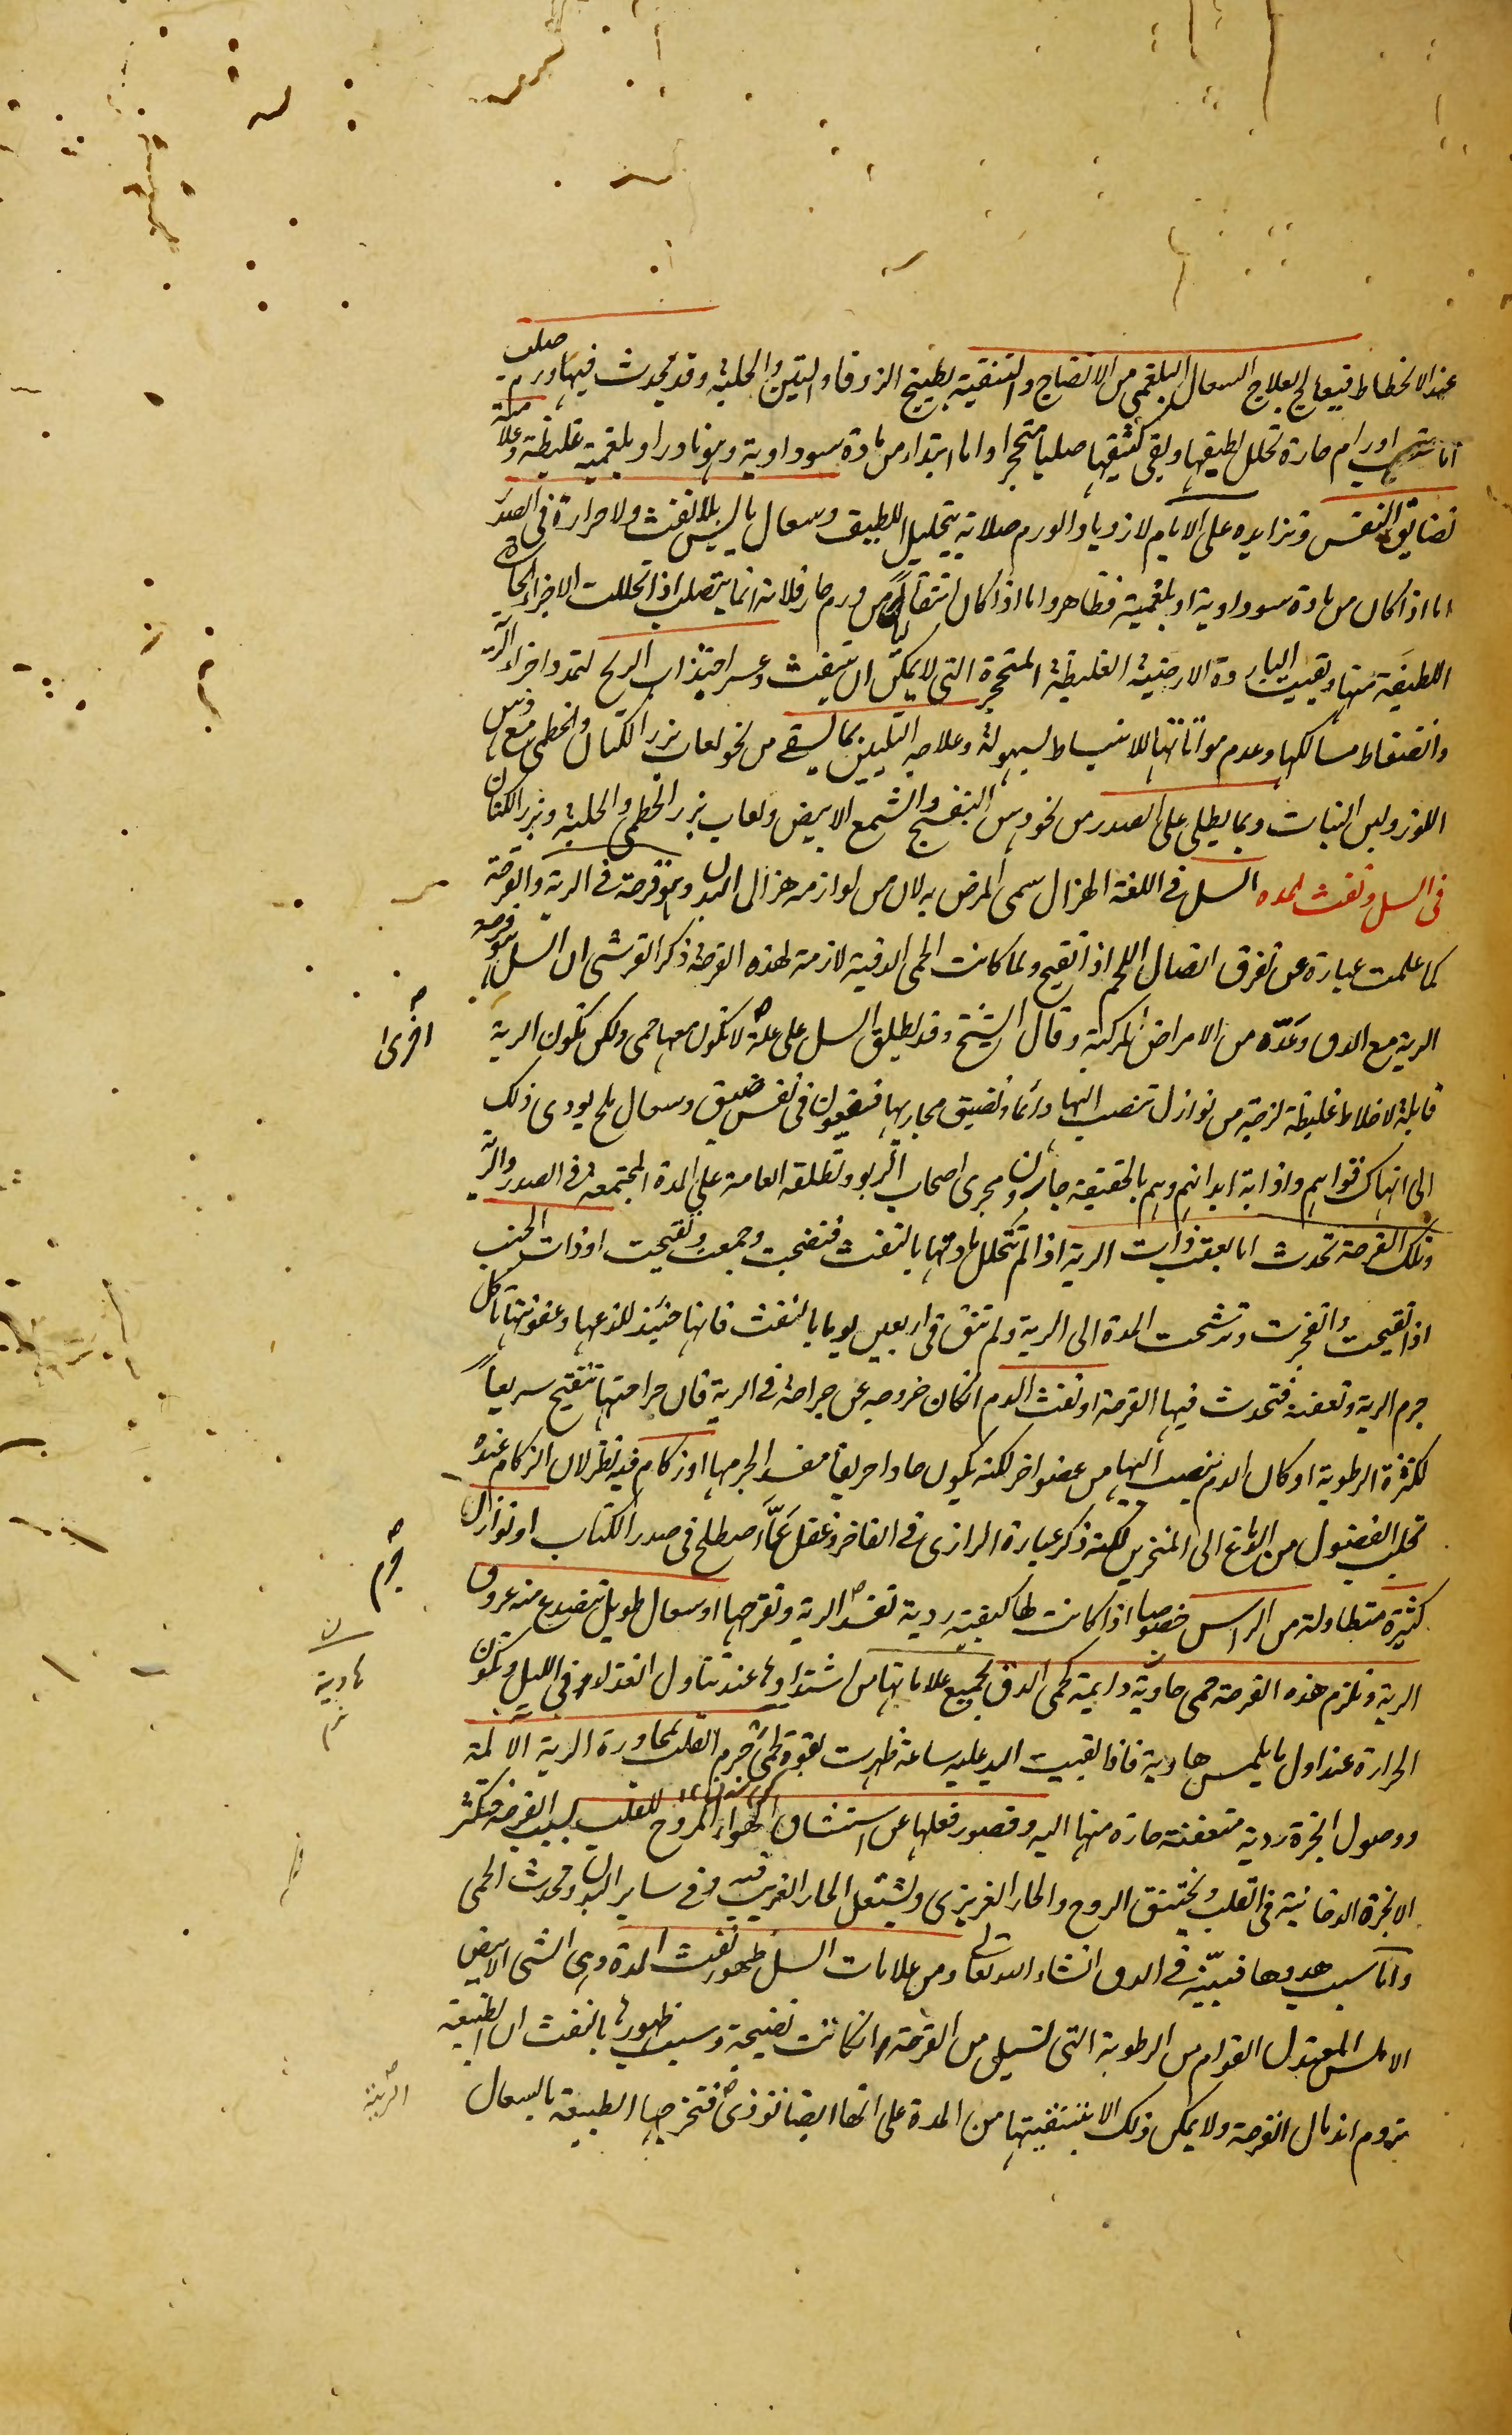 عند الانحطاط فيعالج بعلاج السعال البلغمي من الانضاج والتنقية بطبيخ الزوفا والتين والحلبة وقد يحدث فيها ورم صلب
اما بتحجر اورام حارة تحلل لطيفها وبقي كثيفها صلبا متحجرا واما ابتداء من مادة سوداوية وهو نادر او بلغمية غليظة وعلامته
تضايق النفس وتزايده على الايام لازدياد الورم صلابة بتحليل اللطيف وسعال يابس بلا نفث ولا حرارة في الصدر
اما اذا كان من مادة سوداوية او بلغمية فظاهر واما اذا كان انتقاليا من ورم حار فلانه انما يتصلب اذا تحللت الاجزاء الحارة
اللطيفة منها وبقيت الباردة الارضية الغليظة المتحجرة التي لا يمكن ان تنفث وعسر اجتذاب الريح لتمدد اجزاء الرية
وانضغاط مسالكها وعدم مواتاتها للانبساط بسهولة وعلاجه التليين بما يسقى من نحو لعاب بزر الكتان والخطمي مع دهن
اللوز ولبن النبات وبما يطلى على الصدر من نحو دهن البنفسج والشمع الابيض ولعاب بزر الخطمي والحلبة وبزر الكتان
في السل ونفث المدة السل في اللغة الهزال سمي المرض به لان من لوازمه هزال البدن وهو قرحة في الرية والقرحة
كما علمت عبارة عن تفرق اتصال اللحم اذا تقيح ولما كانت الحمى الدقية لازمة لهذه القرحة ذكر القرشي ان السل هو قرحة
الرية مع الدق وعدّه من الامراض المركبة وقال الشيخ وقد يطلق السل على علة لا تكون معها حمى ولكن تكون الرية
اخرى
قابلة لاخلاط غليظة لزجة من نوازل تنصب اليها دائما وتضيق مجاريها فيقعون في نفس ضيق وسعال ملح يودي ذلك
الى انهاك قواهم واذابة ابدانهم وهم بالحقيقة جارون مجرى اصحاب الربو وتطلقه العامة على المدة المجتمعة في الصدر والرية
وتلك القرحة تحدث اما بعقب ذات الرية اذا لم تتحلل مادتها بالنفث فنضجت وجمعت وتقيحت او ذات الجنب
اذا تقيحت وانفجرت وترشحت المدة الى الرية ولم تنق في اربعين يوما بالنفث فانها حينئذ للذعها وعفونتها تاكل
جرم الرية وتعفنه فتحدث فيها القرحة او نفث الدم ان كان خروجه عن جراحة في الرية فان جراحتها تتقيح سريعاً
لكثرة الرطوبة او كان الدم ينصب اليها من عضو اخر لكنه يكون حادا حريفا مفسدا لجرمها او زكام فيه نظر لان الزكام عنده
تحلب الفضول من الدماغ الى المنخرين لكنه ذكر عبارة الرازي في الفاخر وغفل عمّا اصطلح في صدر الكتاب او نوازل
كثيرة متطاولة من الراس خصوصا اذا كانت لها كيفية ردية تفسد الرية وتقرحها او سعال طويل تنصدع منه عروق
جرم
الرية وتلزم هذه القرحة حمى حادّية دايمة كحمى الدق بجميع علاماتها من اشتدادها عند تناول الغذاء وفي الليل وتكون
هادية
الحرارة عند اول ما يلمس هادية فاذا بقيت اليد عليه ساعة ظهرت بقوة لحمى جرم القلب لمجاورة الرية الالمة
ووصول ابخرة ردية متعفنة حارة منها اليه وقصور فعلها عن استنشاق الهواء المروح للقلب بسبب القرحة فتكثر
الابخرة الدخانية في القلب ويختنق الروح والحار الغريزي ويشتعل الحار الغريب فيه وفي ساير البدن وتحدث الحمى
واما سبب هدوها فنبيّنه في الدق انشاء الله تعالى ومن علامات السل ظهور نفث المدة وهي الشي الابيض
الاملس المعتدل القوام من الرطوبة التي تسيل من القرحة وانكانت نضيجة وسبب ظهورها بالنفث ان الطبيعة
تروم اندمال القرحة ولا يمكن ذلك الا بتنقيتها من المدة على انها ايضا توذي فتخرجها الطبيعة بالسعال
الرية